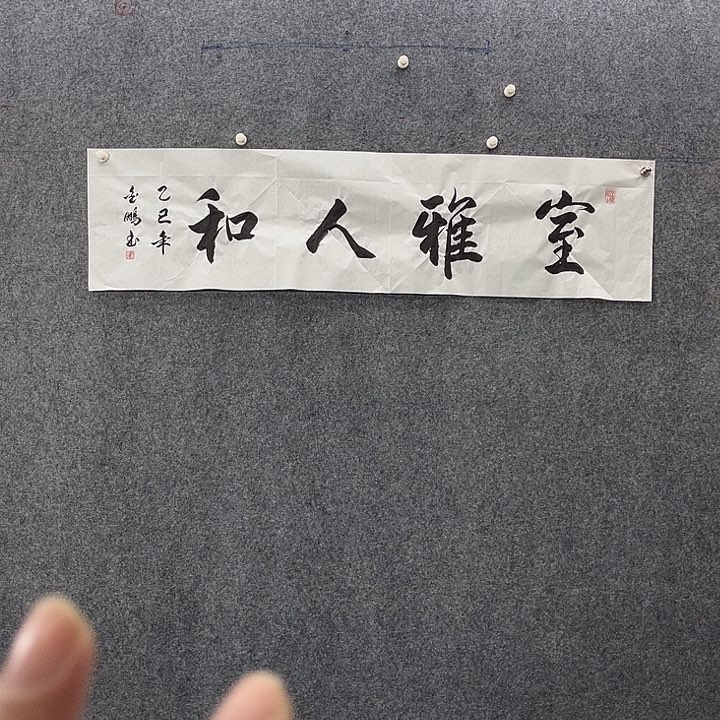 室雅人和
乙巳年
金鵬书